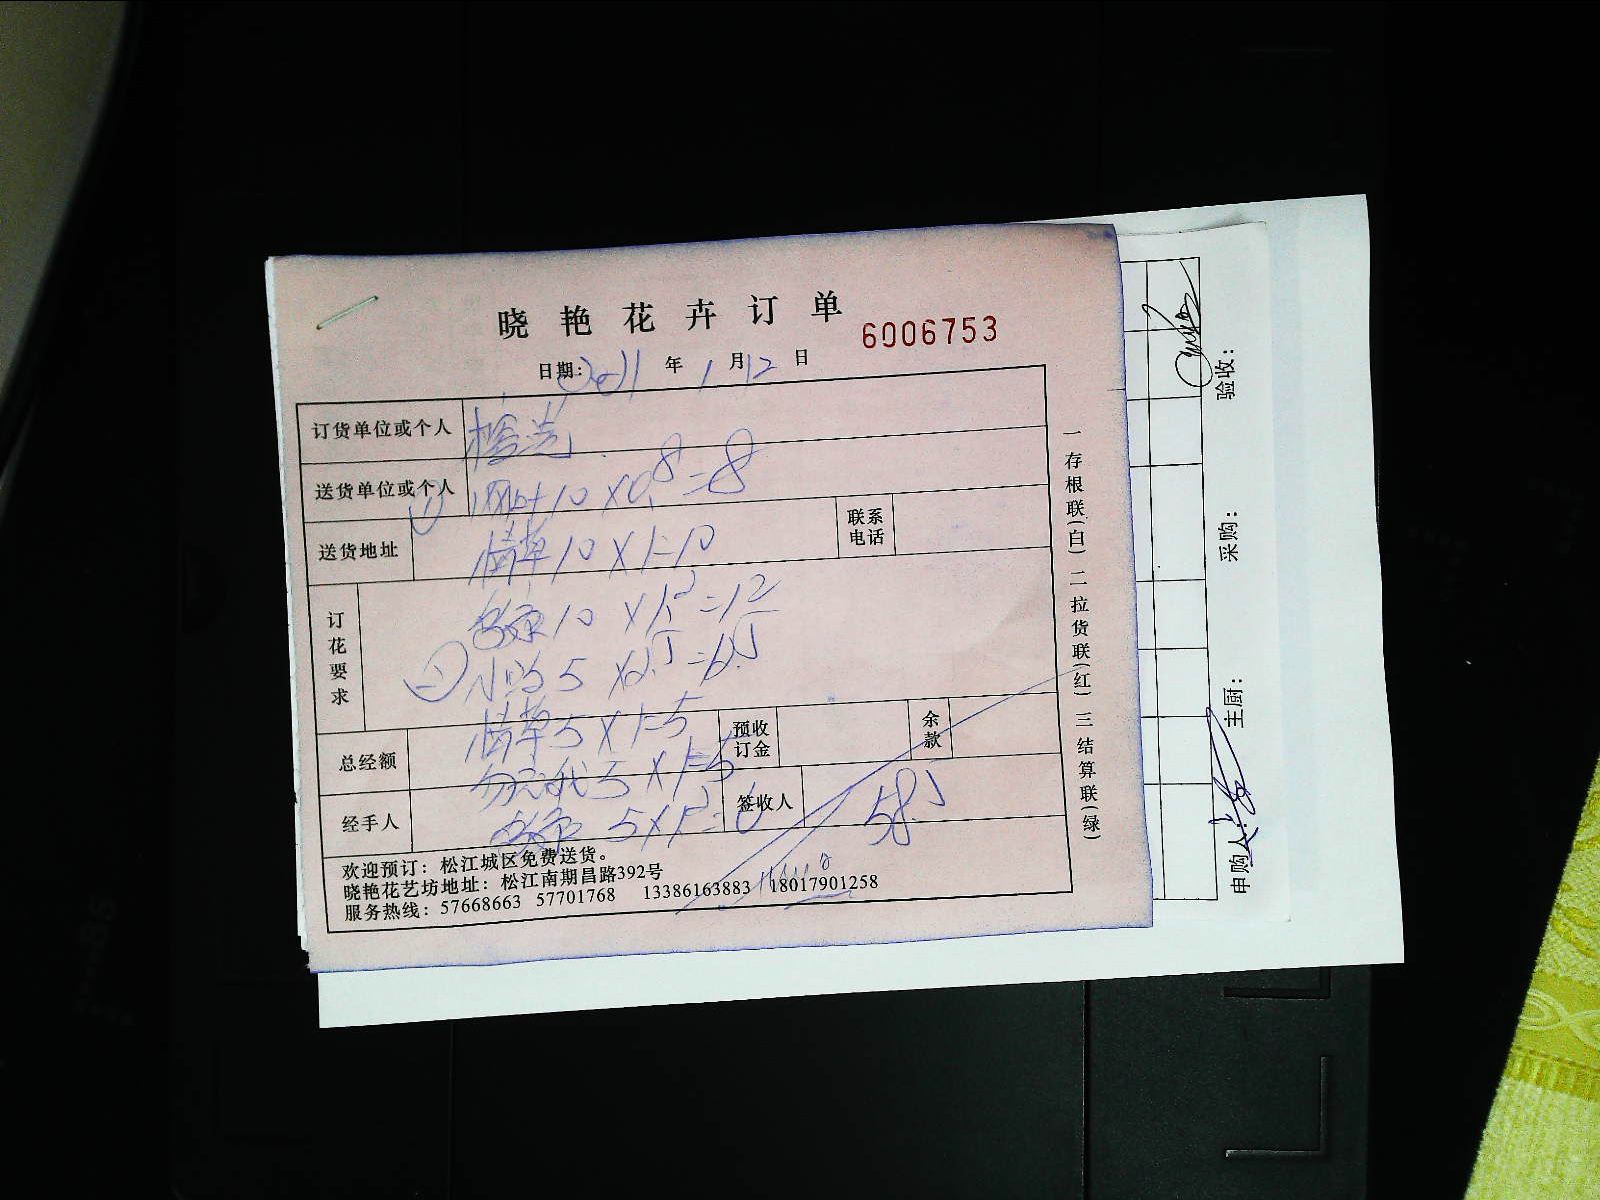 晓艳花卉订单
6006753
日期: 2011 年 1 月 12 日
订货单位或个人
送货单位或个人 10 X 0.8 = 8
送货地址 情草 10 X 1 = 10 联系电话
订花要求
10 X 1.2 = 12
5 = 6.5
情草 5 X 1 = 5
总经额 预收订金 余款
勿忘我 5 X 1 = 5
经手人 5 X 1.2 = 6 签收人 58.5
欢迎预订：松江城区免费送货。
晓艳花艺坊地址：松江南期昌路392号
服务热线：57668663 57701768 13386163883 18017901258
一存根联(白) 二拉货联(红) 三结算联(绿)
验收：
采购：
主厨：
申购人：